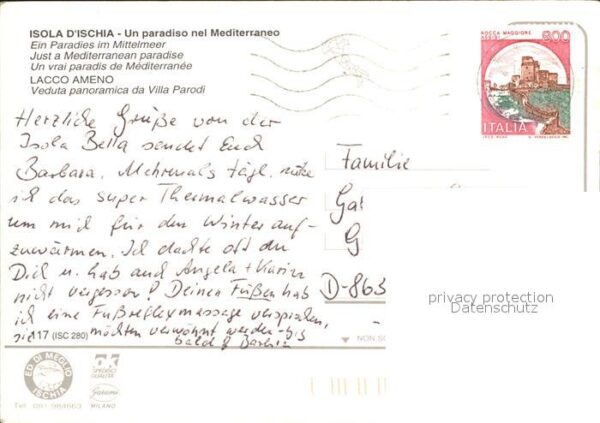 ISOLA D'ISCHIA - Un paradiso nel Mediterraneo
Ein Paradies im Mittelmeer
Just a Mediterranean paradise
Un vrai paradis de Méditerranée
LACCO AMENO
Veduta panoramica da Villa Parodi
ROCCA MAGGIORE
ASSISI
600
ITALIA
Herzliche Grüße von der
Isola Bella sendet Euch
Barbara. Mehrmals tägl. nütze
ich das super Thermalwasser
um mich für den Winter auf-
zuwärmen. Ich dachte oft an
Dich u. hab auch Angela + Karin
nicht vergessen! Deinen Füßen hab
ich eine Fußreflexmassage versprochen,
sie möchten verwöhnt werden - bis
bald Barbara
117 (ISC 280)
Familie
G
D-863
privacy protection
Datenschutz
NON SC
ED. DI MEGLIO
ISCHIA
Tel. 081-984663
MILANO